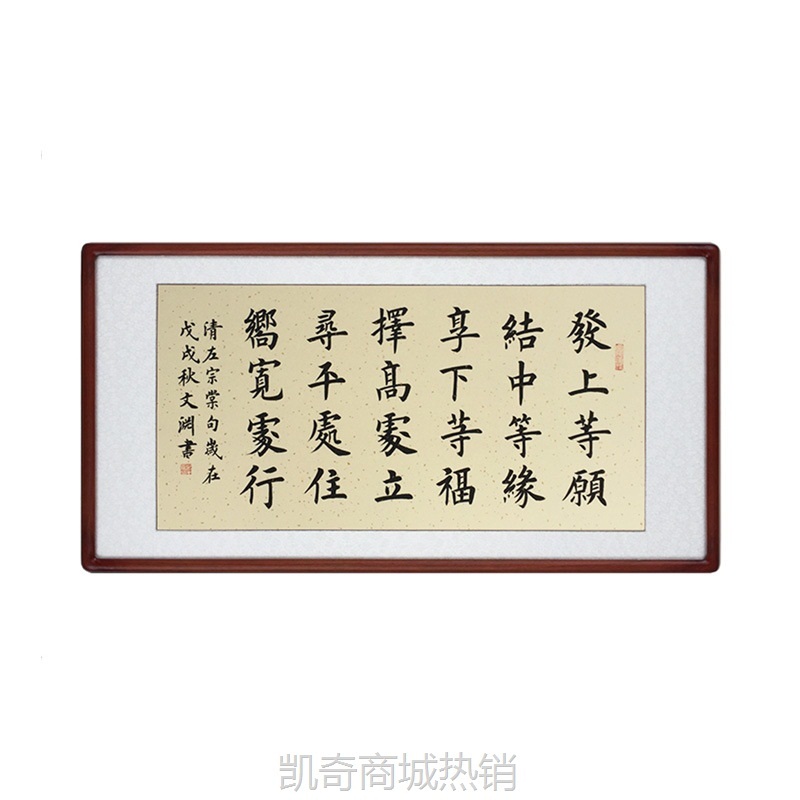 發上等願
結中等緣
享下等福
擇高處立
尋平處住
嚮寬處行
清左宗棠句歲在
戊戌秋文淵書
凯奇商城热销